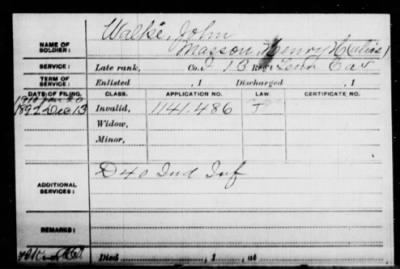 Walke, John
NAME OF SOLDIER: Masson, Henry (Alias)
SERVICE: Late rank, Co. I 13 Reg't Tenn Cav
TERM OF SERVICE: Enlisted , 1 Discharged , 1
DATE OF FILING. CLASS. APPLICATION NO. LAW. CERTIFICATE NO.
1892 Dec 13 Invalid, 1141.486
Widow,
Minor,
ADDITIONAL SERVICES: D 40 Ind Inf
REMARKS:
Died , 1 , at